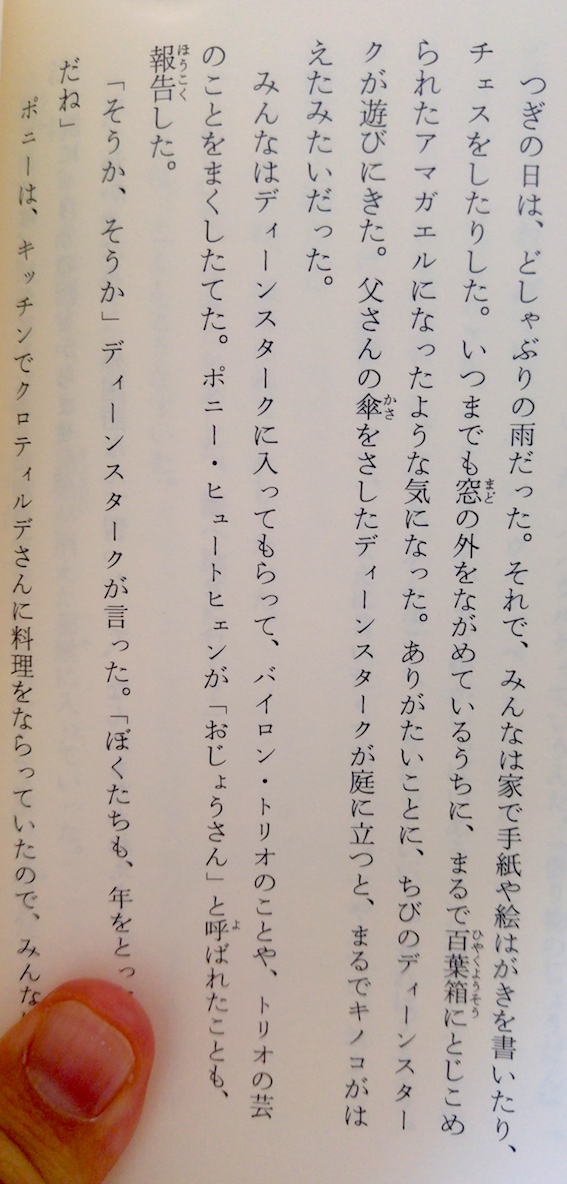 つぎの日は、どしゃぶりの雨だった。それで、みんなは家で手紙や絵はがきを書いたり、
チェスをしたりした。いつまでも窓の外をながめているうちに、まるで百葉箱にとじこめ
られたアマガエルになったような気になった。ありがたいことに、ちびのディーンスター
クが遊びにきた。父さんの傘をさしたディーンスタークが庭に立つと、まるでキノコがは
えたみたいだった。
みんなはディーンスタークに入ってもらって、バイロン・トリオのことや、トリオの芸
のことをまくしたてた。ポニー・ヒュートヒェンが「おじょうさん」と呼ばれたことも、
報告した。
「そうか、そうか」ディーンスタークが言った。「ぼくたちも、年をとっ
だね」
ポニーは、キッチンでクロティルデさんに料理をならっていたので、みんな